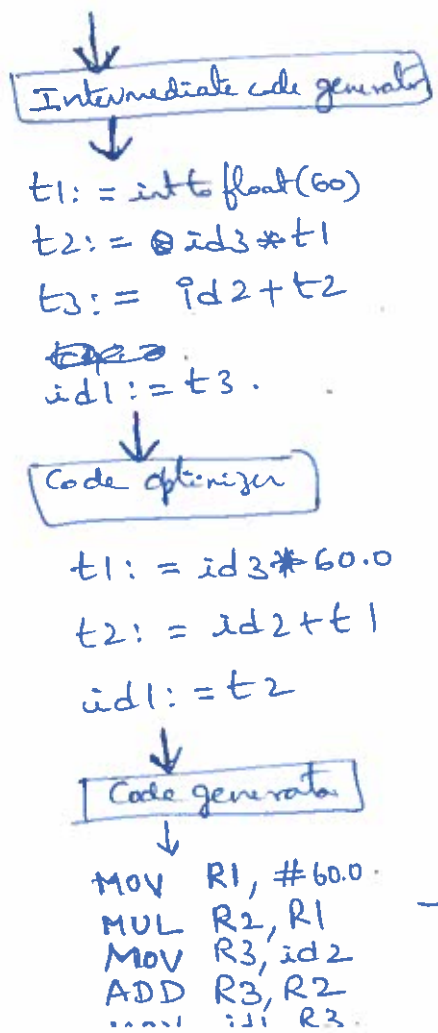 Intermediate code generator
t1:= int to float(60)
t2:= id3*t1
t3:= id2+t2
id1:=t3.
Code optimizer
t1:= id3*60.0
t2:= id2+t1
id1:=t2
Code generator
MOV R1, #60.0.
MUL R2, R1
MOV R3, id2
ADD R3, R2
R3